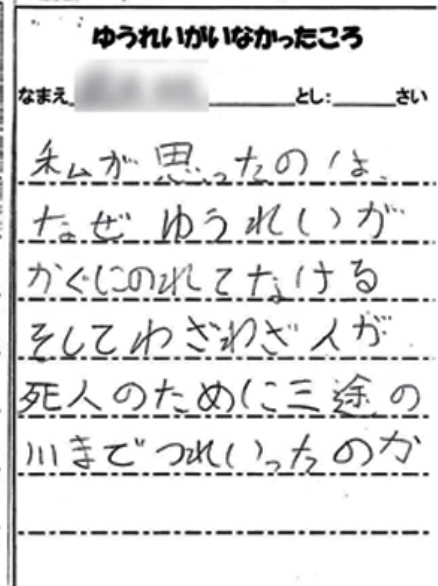 ゆうれいがいなかったころ
なまえ とし: さい
私が思ったのは、
なぜゆうれいが
かぐにのれてなける
そしてわざわざ人が
死人のために三途の
川までつれいったのか